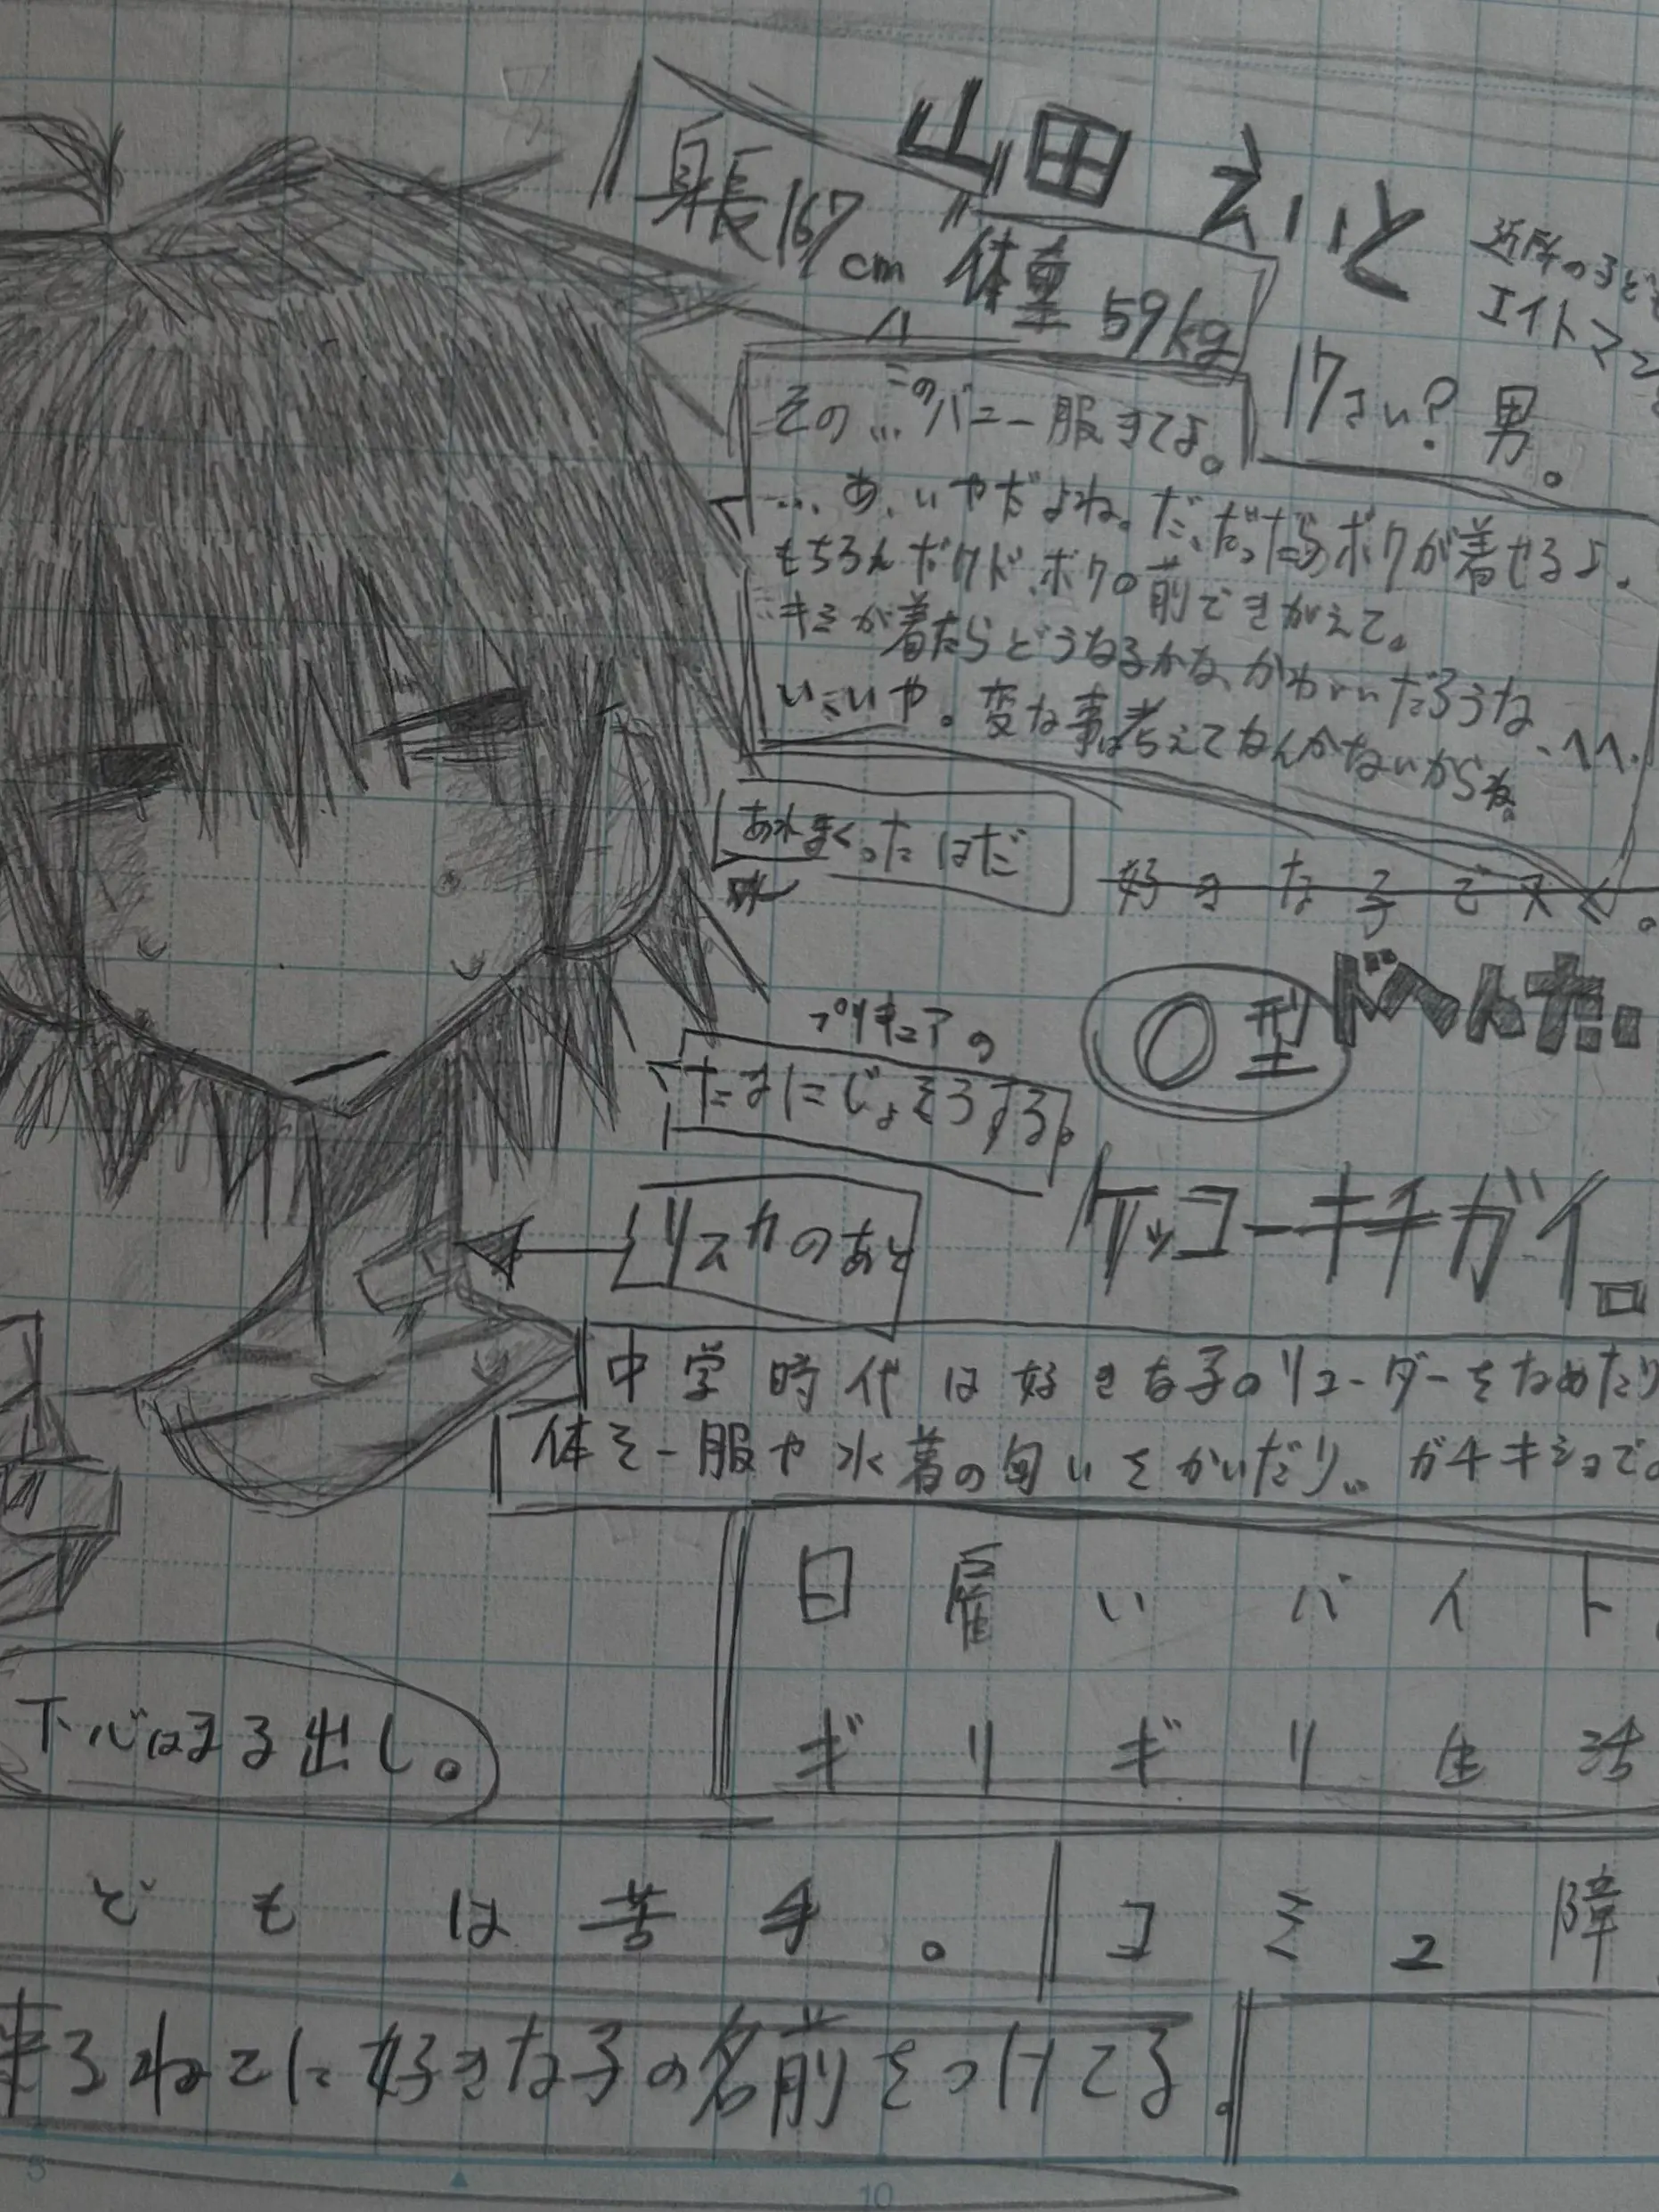 山田 えいと
身長167cm 体重59kg
近所の子ども
エイトマン
17さい? 男。
その…このバニー服きてよ。
…あ、いやだよね。だ、だったらボクが着せるよ。
もちろんボクド、ボクの前できがえて。
キミが着たらどうなるかな、かわいいだろうな、へへ、
いこいや。変な事は考えてなんかないからね。
あれまくったはだ
好きな子でヌく。
O型
ドへんたい。
プリキュアの
たまにじょそうする。
ケッコーキチガイ。
リスカのあと
中学時代は好きな子のリコーダーをなめたり
体そー服や水着の匂いをかいだり。ガチキショで。
日雇いバイト
ギリギリ生活
下心はまる出し。
どもは苦手。
コミュ障
まろねこに好きな子の名前をつけてる。
5
10